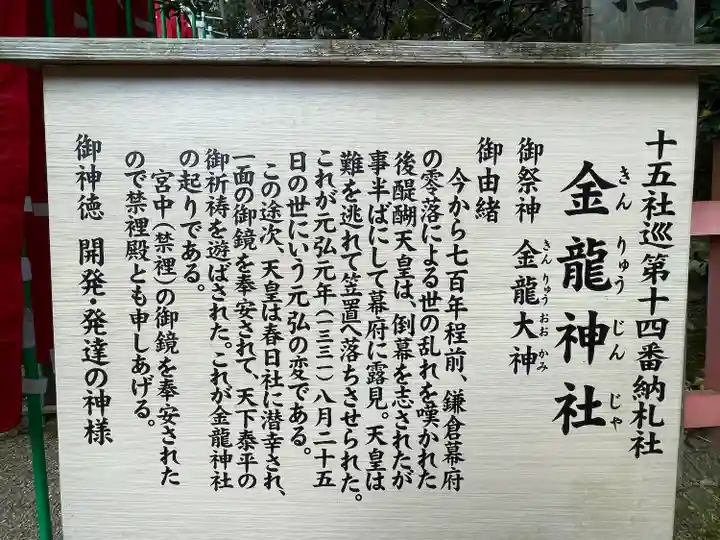 十五社巡第十四番納札社
金龍神社
きんりゅうじんじゃ
御祭神 金龍大神
きんりゅうおおかみ
御由緒
今から七百年程前、鎌倉幕府
の零落による世の乱れを嘆かれた
後醍醐天皇は、倒幕を志されたが
事半ばにして幕府に露見。天皇は
難を逃れて笠置へ落ちさせられた。
これが元弘元年(一三三一)八月二十五
日の世にいう元弘の変である。
この途次、天皇は春日社に潜幸され、
一面の御鏡を奉安されて、天下泰平の
御祈祷を遊ばされた。これが金龍神社
の起りである。
宮中(禁裡)の御鏡を奉安された
ので禁裡殿とも申しあげる。
御神徳 開発・発達の神様